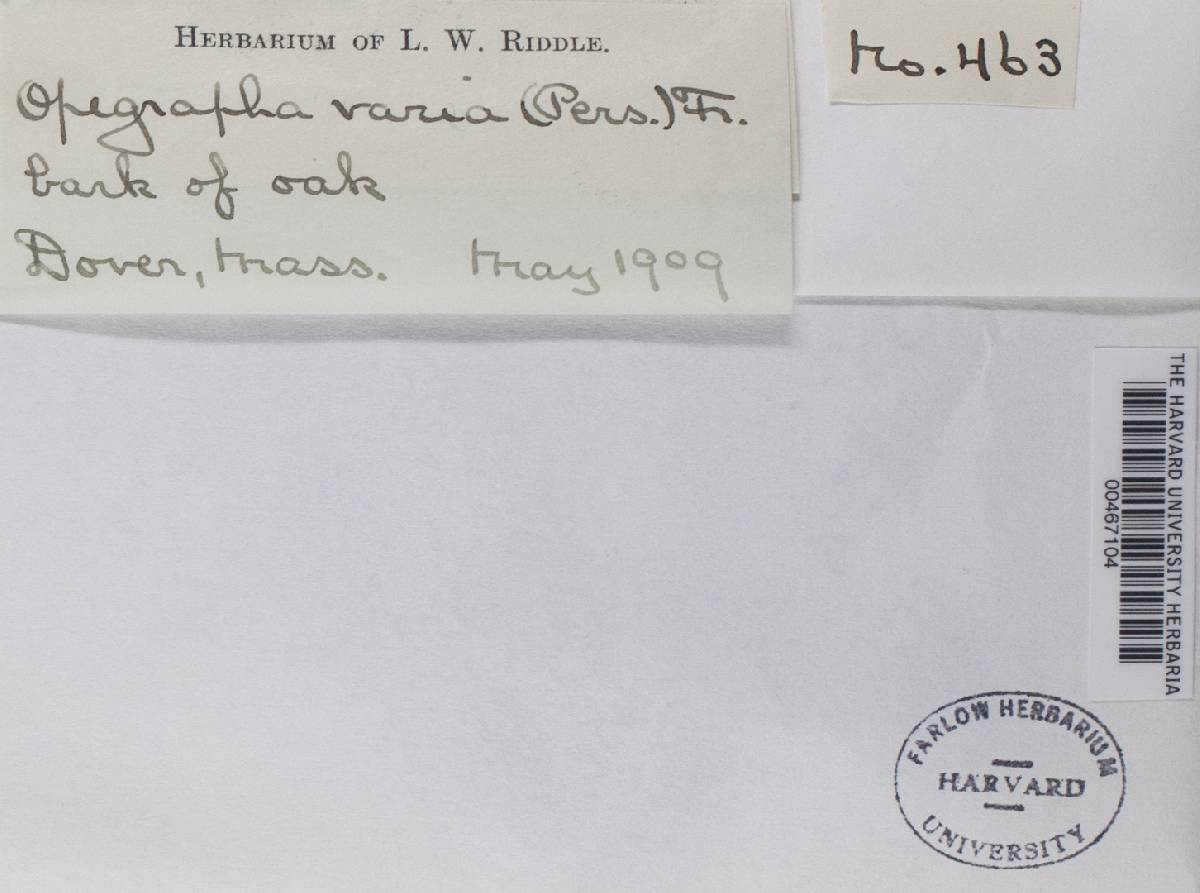 HERBARIUM OF L. W. RIDDLE.
Opegrapha varia (Pers.) Fr.
bark of oak
Dover, Mass. May 1909
No. 463
THE HARVARD UNIVERSITY HERBARIA
00467104
FARLOW HERBARIUM
HARVARD
UNIVERSITY